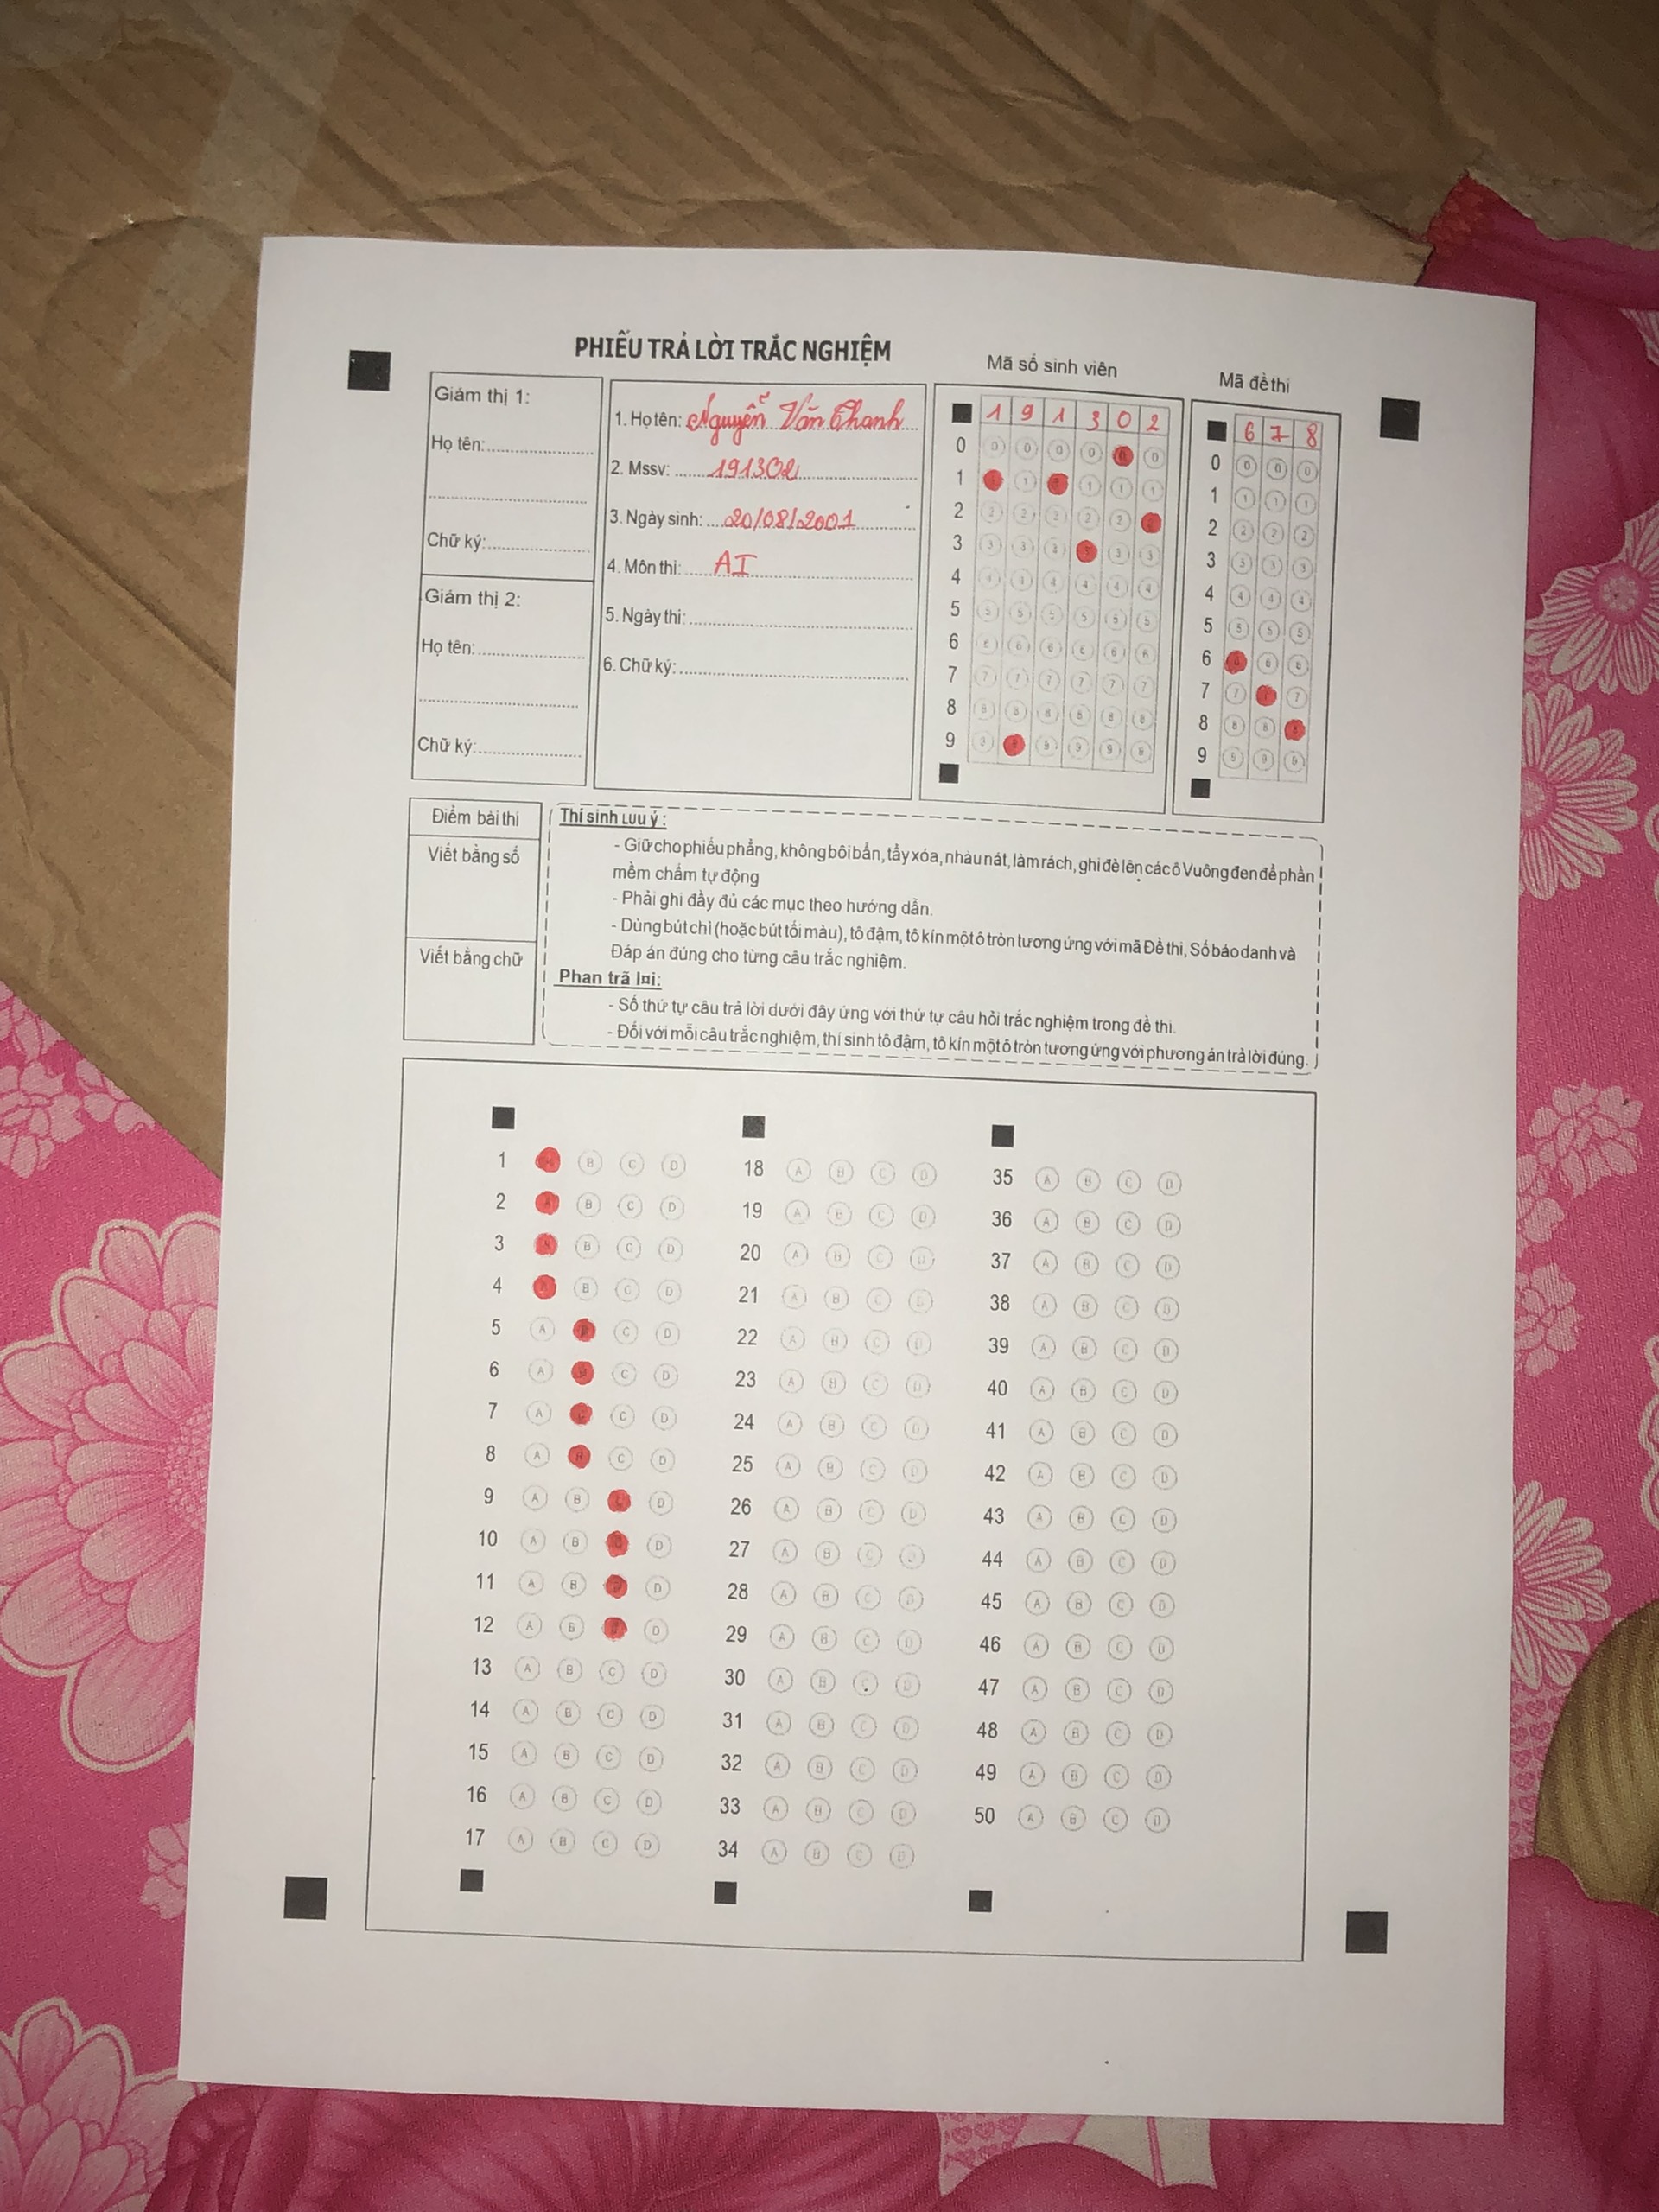 PHIẾU TRẢ LỜI TRẮC NGHIỆM
Giám thị 1:
Họ tên:
Chữ ký:
Giám thị 2:
Họ tên:
Chữ ký:
1. Họ tên: Nguyễn Văn Thanh
2. Mssv: 191302
3. Ngày sinh: 20/08/2001
4. Môn thi: AI
5. Ngày thi:
6. Chữ ký:
Mã số sinh viên
1 9 1 3 0 2
0
1
2
3
4
5
6
7
8
9
Mã đề thi
6 7 8
0
1
2
3
4
5
6
7
8
9
Điểm bài thi
Viết bằng số
Viết bằng chữ
Thí sinh Lưu ý:
- Giữ cho phiếu phẳng, không bôi bẩn, tẩy xóa, nhàu nát, làm rách, ghi đè lên các ô Vuông đen để phần
mềm chấm tự động
- Phải ghi đầy đủ các mục theo hướng dẫn.
- Dùng bút chì (hoặc bút tối màu), tô đậm, tô kín một ô tròn tương ứng với mã Đề thi, Số báo danh và
Đáp án đúng cho từng câu trắc nghiệm.
Phan trã lai:
- Số thứ tự câu trả lời dưới đây ứng với thứ tự câu hỏi trắc nghiệm trong đề thi.
- Đối với mỗi câu trắc nghiệm, thí sinh tô đậm, tô kín một ô tròn tương ứng với phương án trả lời đúng.
1 B C D
2 B C D
3 B C D
4 B C D
5 A C D
6 A C D
7 A C D
8 A C D
9 A B D
10 A B D
11 A B D
12 A B D
13 A B C D
14 A B C D
15 A B C D
16 A B C D
17 A B C D
18 A B C D
19 A B C D
20 A B C D
21 A B C D
22 A B C D
23 A B C D
24 A B C D
25 A B C D
26 A B C D
27 A B C D
28 A B C D
29 A B C D
30 A B C D
31 A B C D
32 A B C D
33 A B C D
34 A B C D
35 A B C D
36 A B C D
37 A B C D
38 A B C D
39 A B C D
40 A B C D
41 A B C D
42 A B C D
43 A B C D
44 A B C D
45 A B C D
46 A B C D
47 A B C D
48 A B C D
49 A B C D
50 A B C D